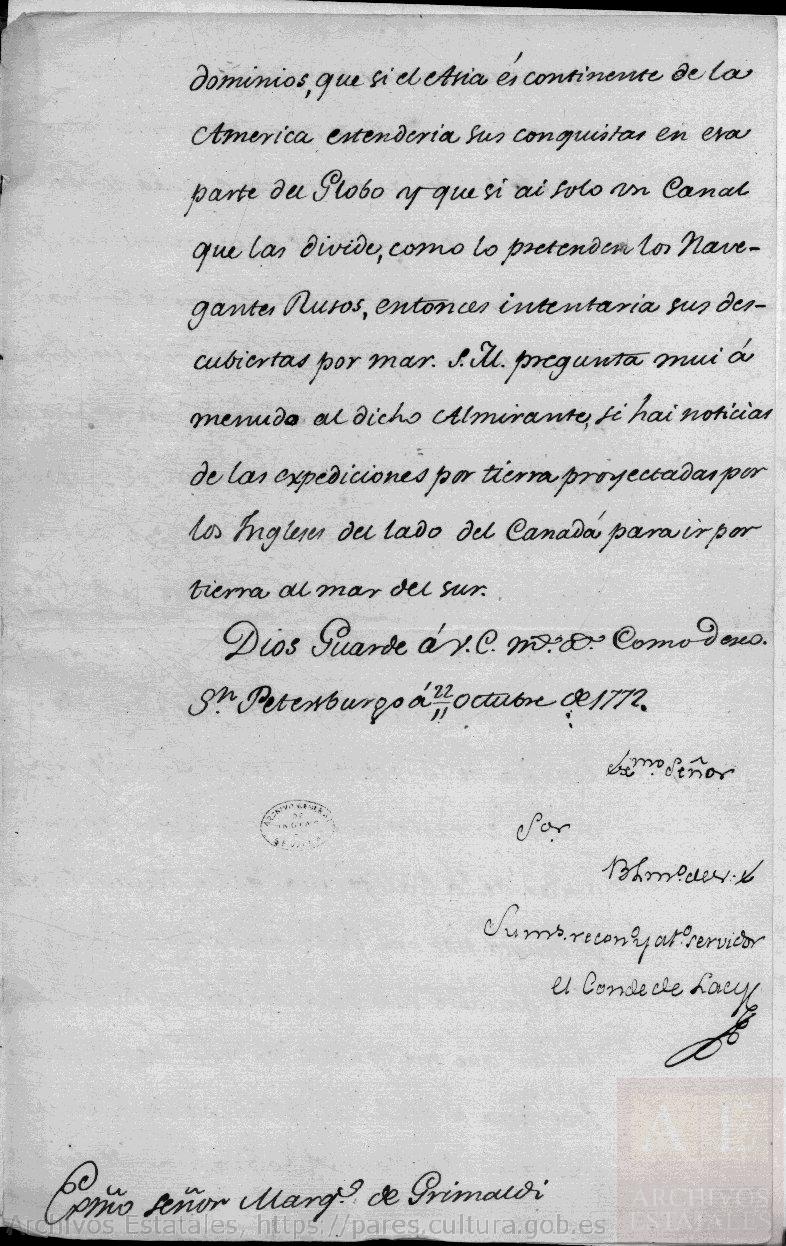 dominios, que si el Asia és continente de la
America estenderia sus conquistas en esa
parte del Globo y que si ai solo un Canal
que las divide, como lo pretenden los Nave-
gantes Rusos, entonces intentaria sus des-
cubiertas por mar. S. M. pregunta mui á
menudo al dicho Almirante, si hai noticias
de las expediciones por tierra proyectadas por
los Ingleses del lado del Canadá para ir por
tierra al mar del sur.
Dios Guarde á V.E. ms. as. Como Deseo.
Sn. Petersburgo á 22/11 Octubre de 1772.
Exmo. Señor
Sor.
B L mo. de V. E
Su ms. recono. y ato. servidor
el Conde de Lacy
ARCHIVO GENERAL
DE
INDIAS
SEVILLA
Exmo señor Marqs. de Grimaldi
Archivos Estatales, https://pares.cultura.gob.es
AE
ARCHIVOS
ESTATALES